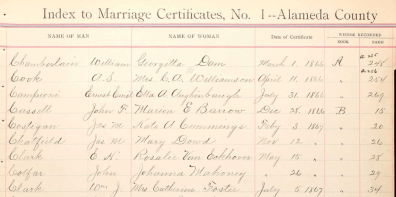 Index to Marriage Certificates, No. 1--Alameda County
NAME OF MAN NAME OF WOMAN Date of Certificate WHERE RECORDED
BOOK PAGE
Chamberlain William Georgetta Dam March 1 1866 A
Cook A.S. Mrs C.A. Williamson April 11 1866 " 254
Ernest Ella A. July 31 1866 " 269
Cassell John F. Marien E Barrow Dec 25 1866 B 15
Costigan Jas M Kate A Cummings Feby 3 1867 " 20
Chatfield Jas M Mary Dowd Nov 12 " " 26
Clark E.K. Rosalie Van Eckhoven May 15 " " 28
Colfar John Johanna Mahoney " 26 " " 29
Clark Wm J Mrs Catharine Foster July 5 1867 " 34